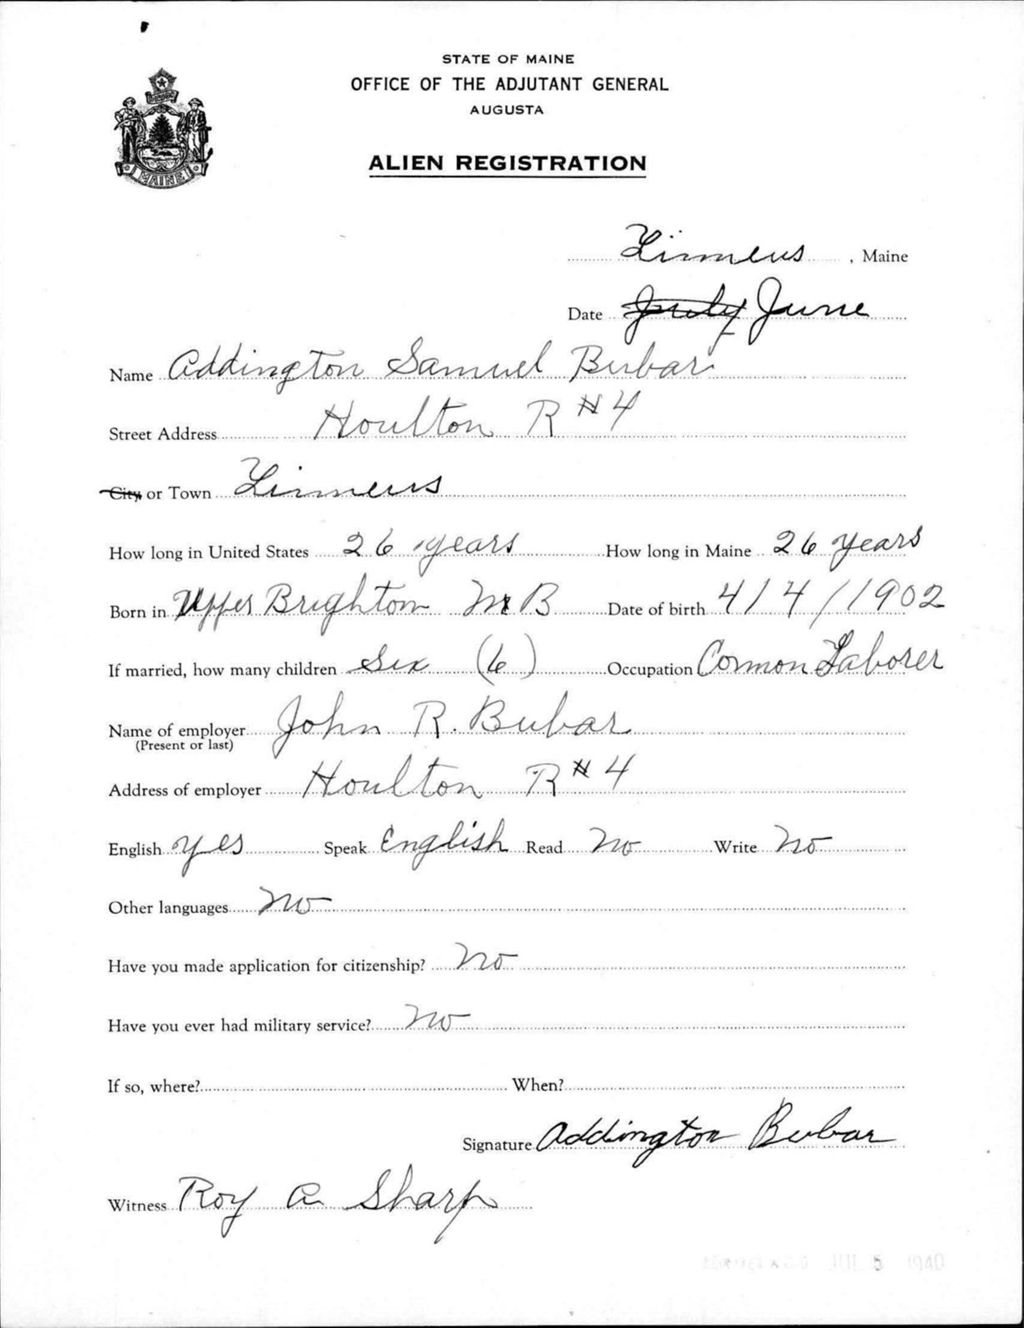 STATE OF MAINE
OFFICE OF THE ADJUTANT GENERAL
AUGUSTA
MAINE
ALIEN REGISTRATION
Linneus, Maine
Date July June
Name Addington Samuel Bubar
Street Address Houlton R #4
City or Town Linneus
How long in United States 26 years How long in Maine 26 years
Born in Upper Brighton N B Date of birth 4/4/1902
If married, how many children Six (6) Occupation Common Laborer
Name of employer John R. Bubar
(Present or last)
Address of employer Houlton R #4
English yes Speak English Read No Write No
Other languages No
Have you made application for citizenship? No
Have you ever had military service? No
If so, where? When?
Signature Addington Bubar
Witness Roy A Sharp
JUL 5 1940